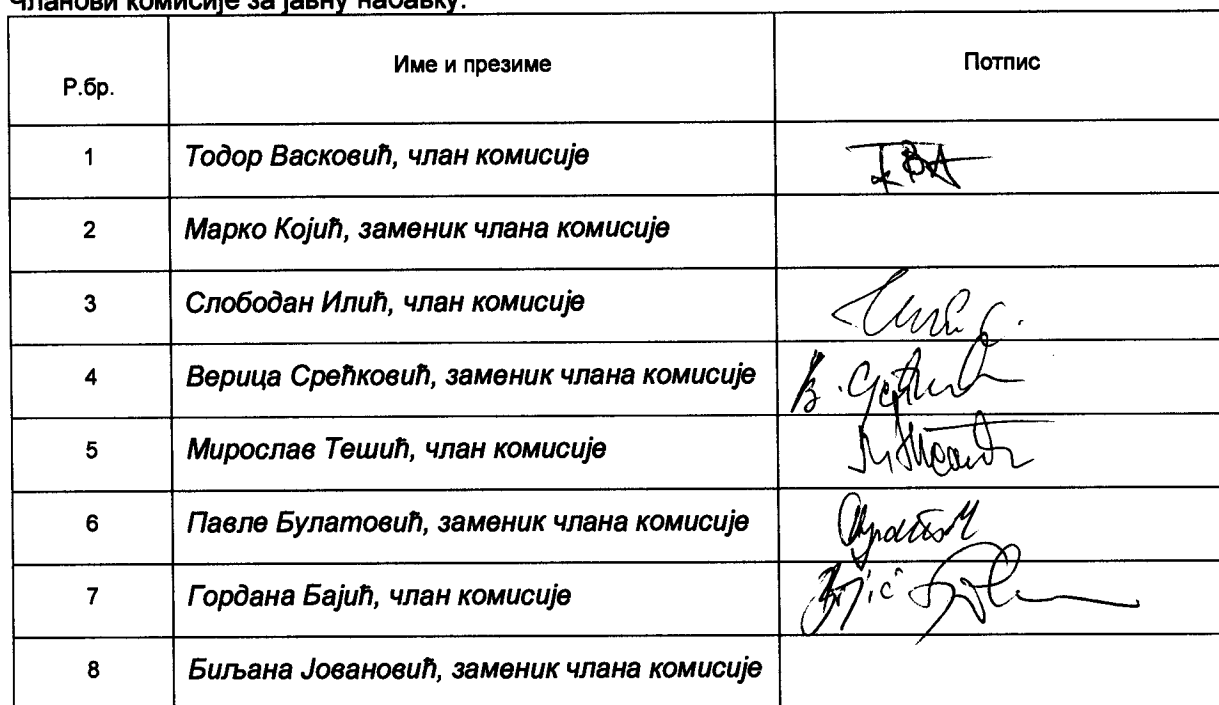 Чланови комисије за јавну набавку:
Р.бр. Име и презиме Потпис
1 Тодор Васковић, члан комисије
2 Марко Којић, заменик члана комисије
3 Слободан Илић, члан комисије
4 Верица Срећковић, заменик члана комисије
5 Мирослав Тешић, члан комисије
6 Павле Булатовић, заменик члана комисије
7 Гордана Бајић, члан комисије
8 Биљана Јовановић, заменик члана комисије